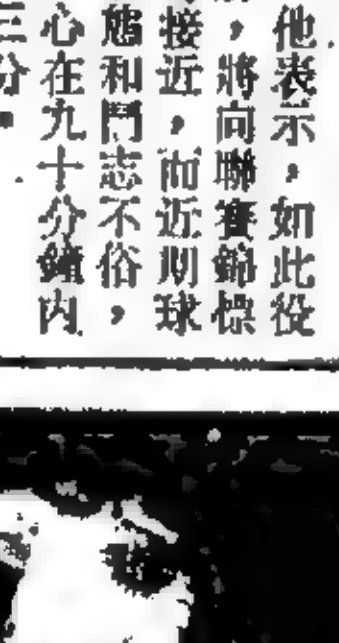 他表示，如此役
，將向聯賽錦標
接近，而近期球
態和鬥志不俗，
心在九十分鐘內
三分。